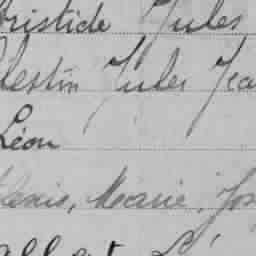 ristide Jules
lestin Jules Jea
Léon
lexis, Marie, Jos